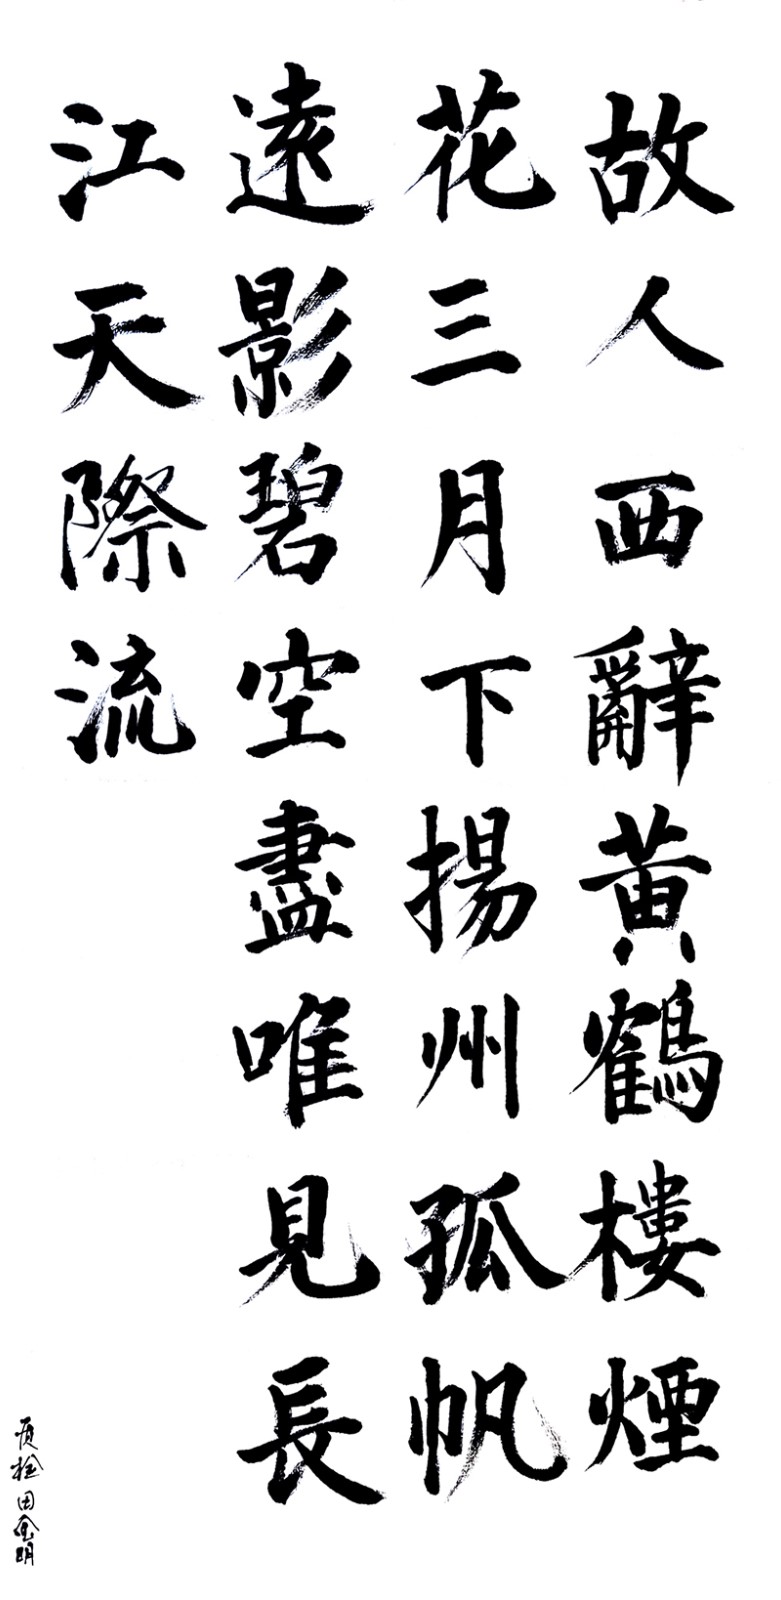 故人西辭黃鶴樓煙
花三月下揚州孤帆
遠影碧空盡唯見長
江天際流
田金明